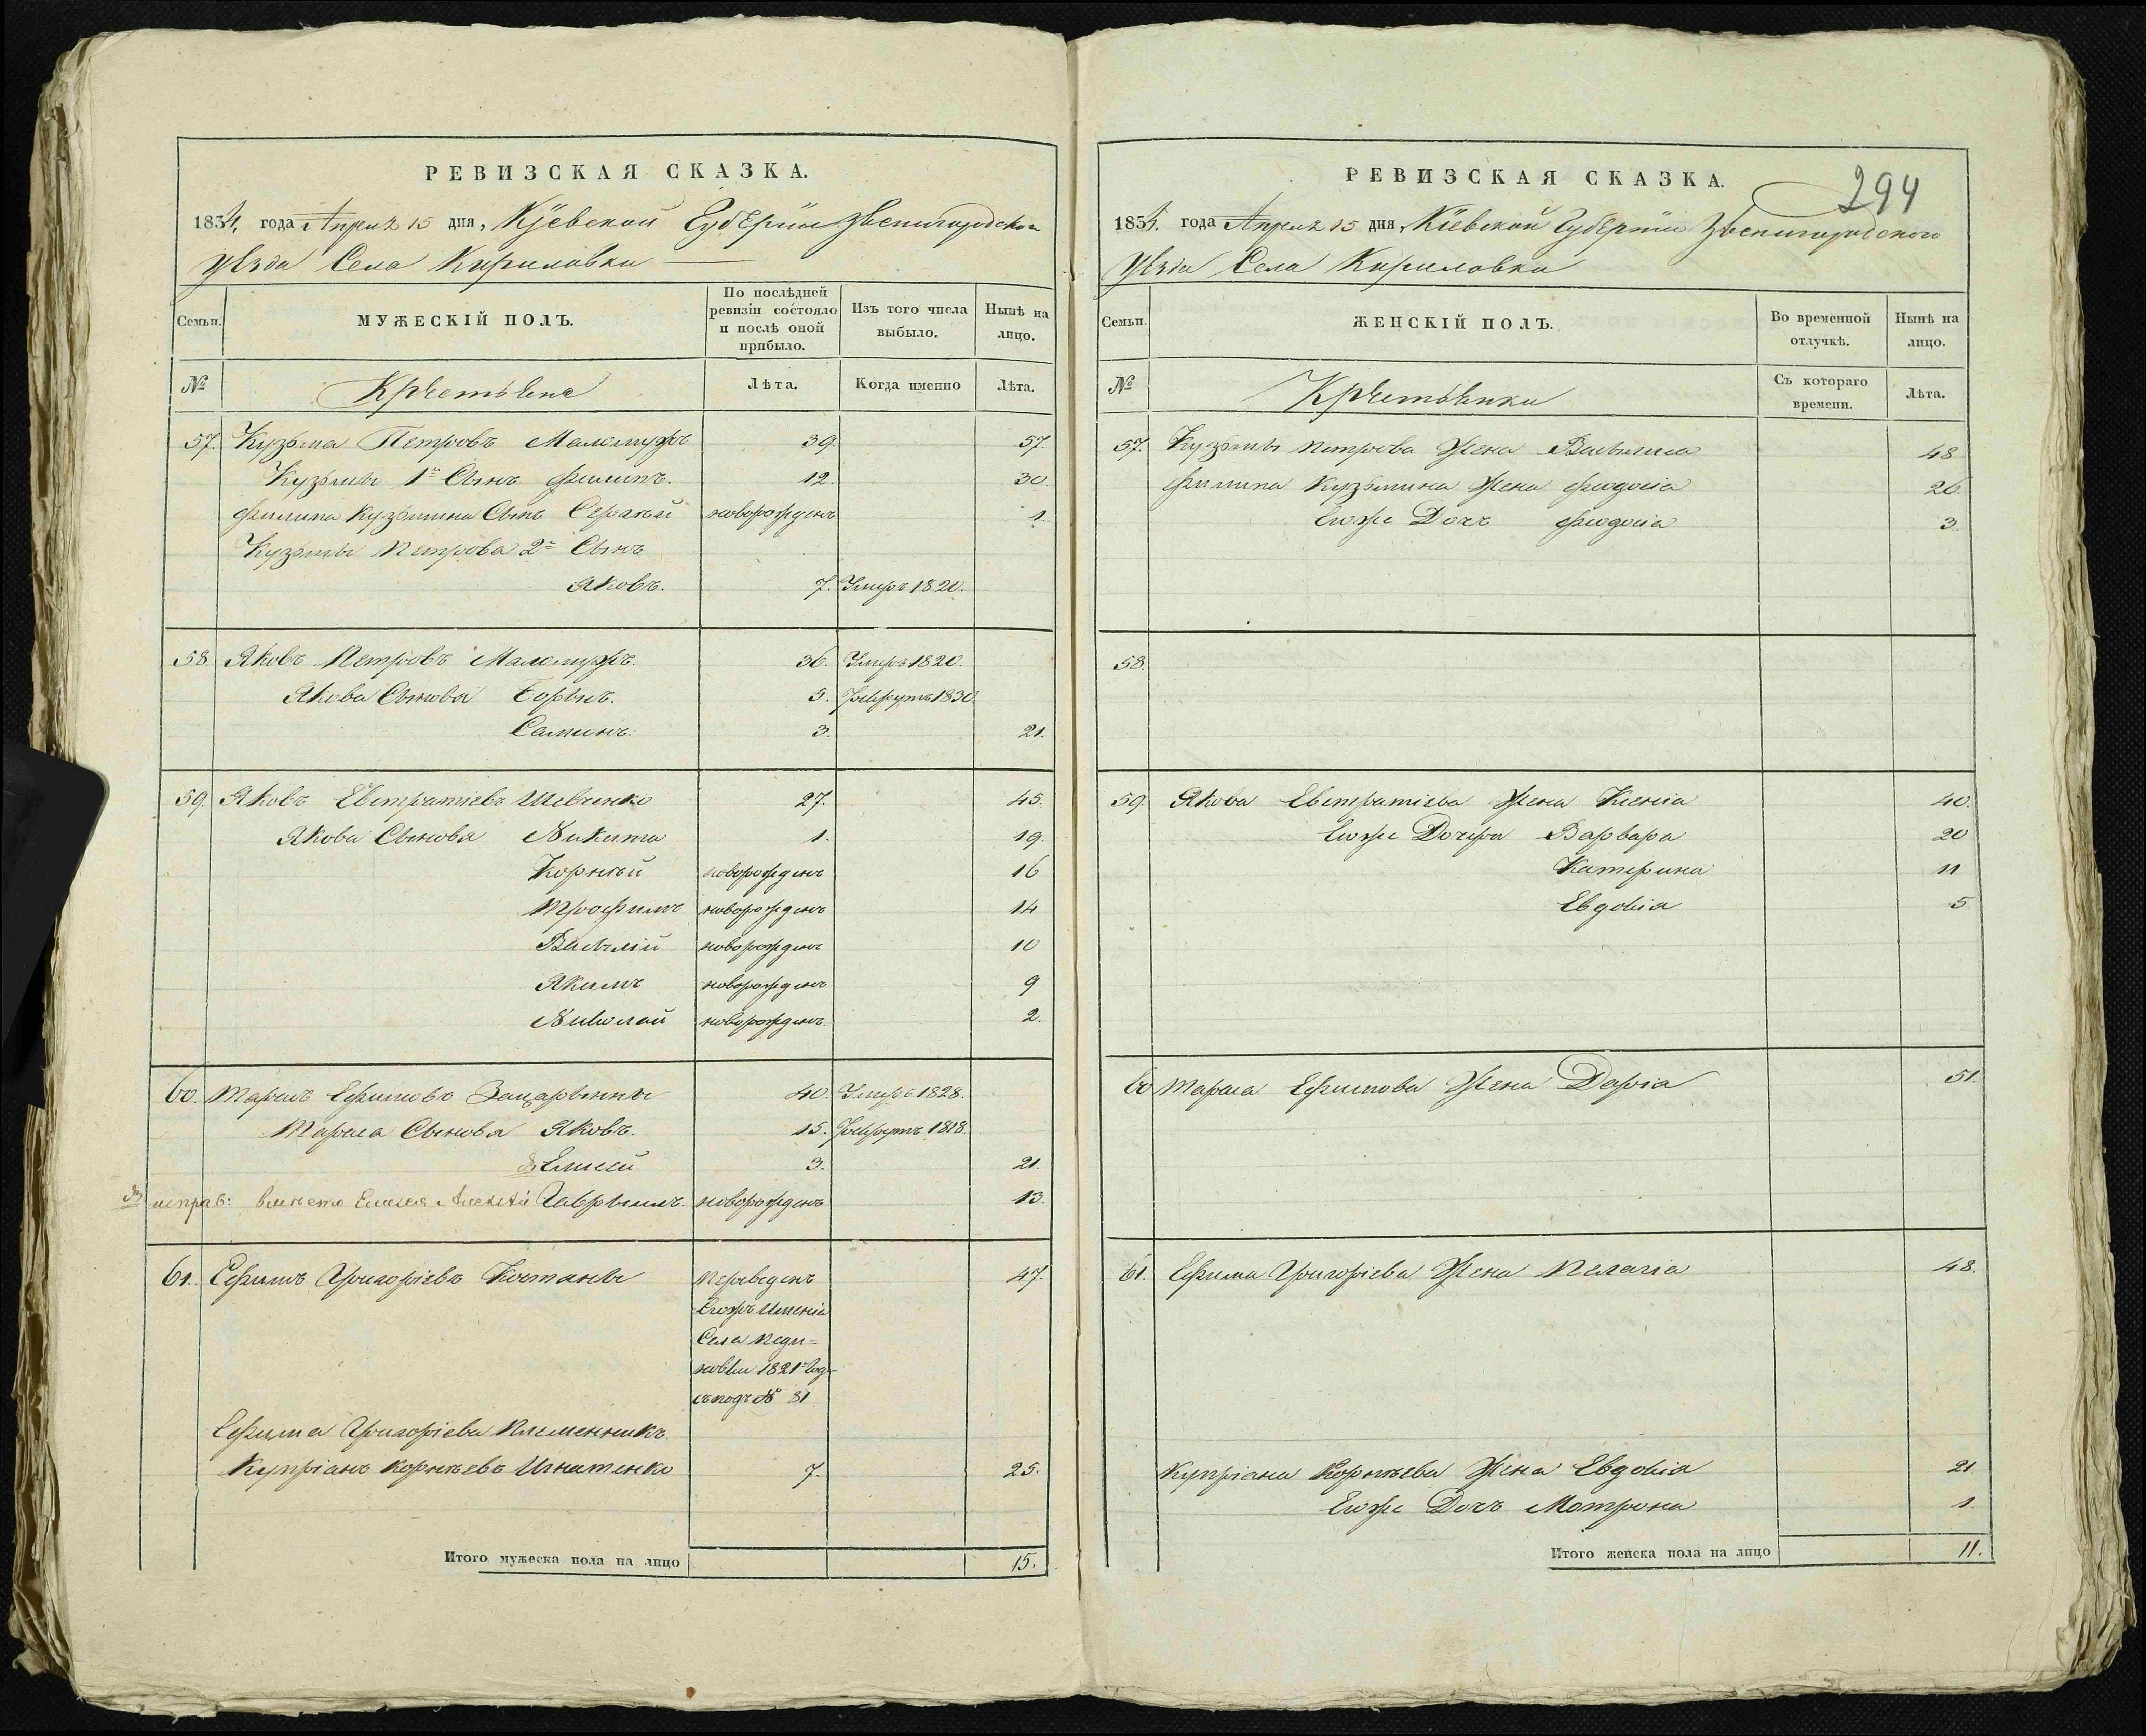 РЕВИЗСКАЯ СКАЗКА.
1834, года Апреля 15 дня, Кіевской Губерніи Звенигородского
Уѣзда Села Кириловки
Семьи.
МУЖЕСКІЙ ПОЛЪ.
По послѣдней ревизіи состояло и послѣ оной прибыло.
Изъ того числа выбыло.
Нынѣ на лицо.
№
Крестьяне
Лѣта.
Когда именно
Лѣта.
57. Кузьма Петровъ 39. 57.
Кузьмы 1й Сынъ Филипъ. 12. 30.
Филипа Кузьмина Сынъ Сергѣй новорожденъ 1.
Кузьмы Петрова 2й Сынъ
Яковъ. 7. Умеръ 1820.
58. Яковъ Петровъ 36. Умеръ 1820.
Якова Сыновья 5. Рекрутъ 1830.
Семионъ. 3. 21.
59. Яковъ Евстратіевъ Шевченко 27. 45.
Якова Сыновья Никита 1. 19.
Корнѣй новорожденъ 16
Трофимъ новорожденъ 14
Василій новорожденъ 10
Якимъ новорожденъ 9
Николай новорожденъ. 2.
60. Тарасъ Ефимовъ 40. Умеръ 1828.
Тараса Сыновья Яковъ. 15. Рекрутъ 1818.
Елисей 3. 21.
исправ: вместо Елисея Алексѣй Гаврыилъ. новорожденъ 13.
61. Ефимъ Григоріевъ 47.
Переведенъ
Именія
Села Педи=
новки 1821 Года
съ подъ № 31
Ефима Григоріева Племенникъ.
Купріанъ Корнѣевъ Игнатенко 7. 25.
Итого мужеска пола на лицо 15.
294
РЕВИЗСКАЯ СКАЗКА.
1834. года Апреля 15 дня, Кіевской Губерніи Звенигородского
Уѣзда Села Кириловки
Семьи.
ЖЕНСКІЙ ПОЛЪ.
Во временной отлучкѣ.
Нынѣ на лицо.
№
Крестьянки
Съ котораго времени.
Лѣта.
57. Кузьмы Петрова Жена Васылиса 48
Филипа Кузьмина Жена Феодосія 26.
Егоже Дочь Феодосія 3.
58.
59. Якова Евстратіева Жена Ксенія 40.
Егоже Дочери Варвара 20
Катерина 11
Евдокія 5.
60 Тараса Ефимова Жена Дарія 51.
61. Ефима Григоріева Жена Пелагія 48.
Купріана Корнѣева Жена Евдокія 21.
Егоже Дочь Мотрона 1.
Итого женска пола на лицо 11.